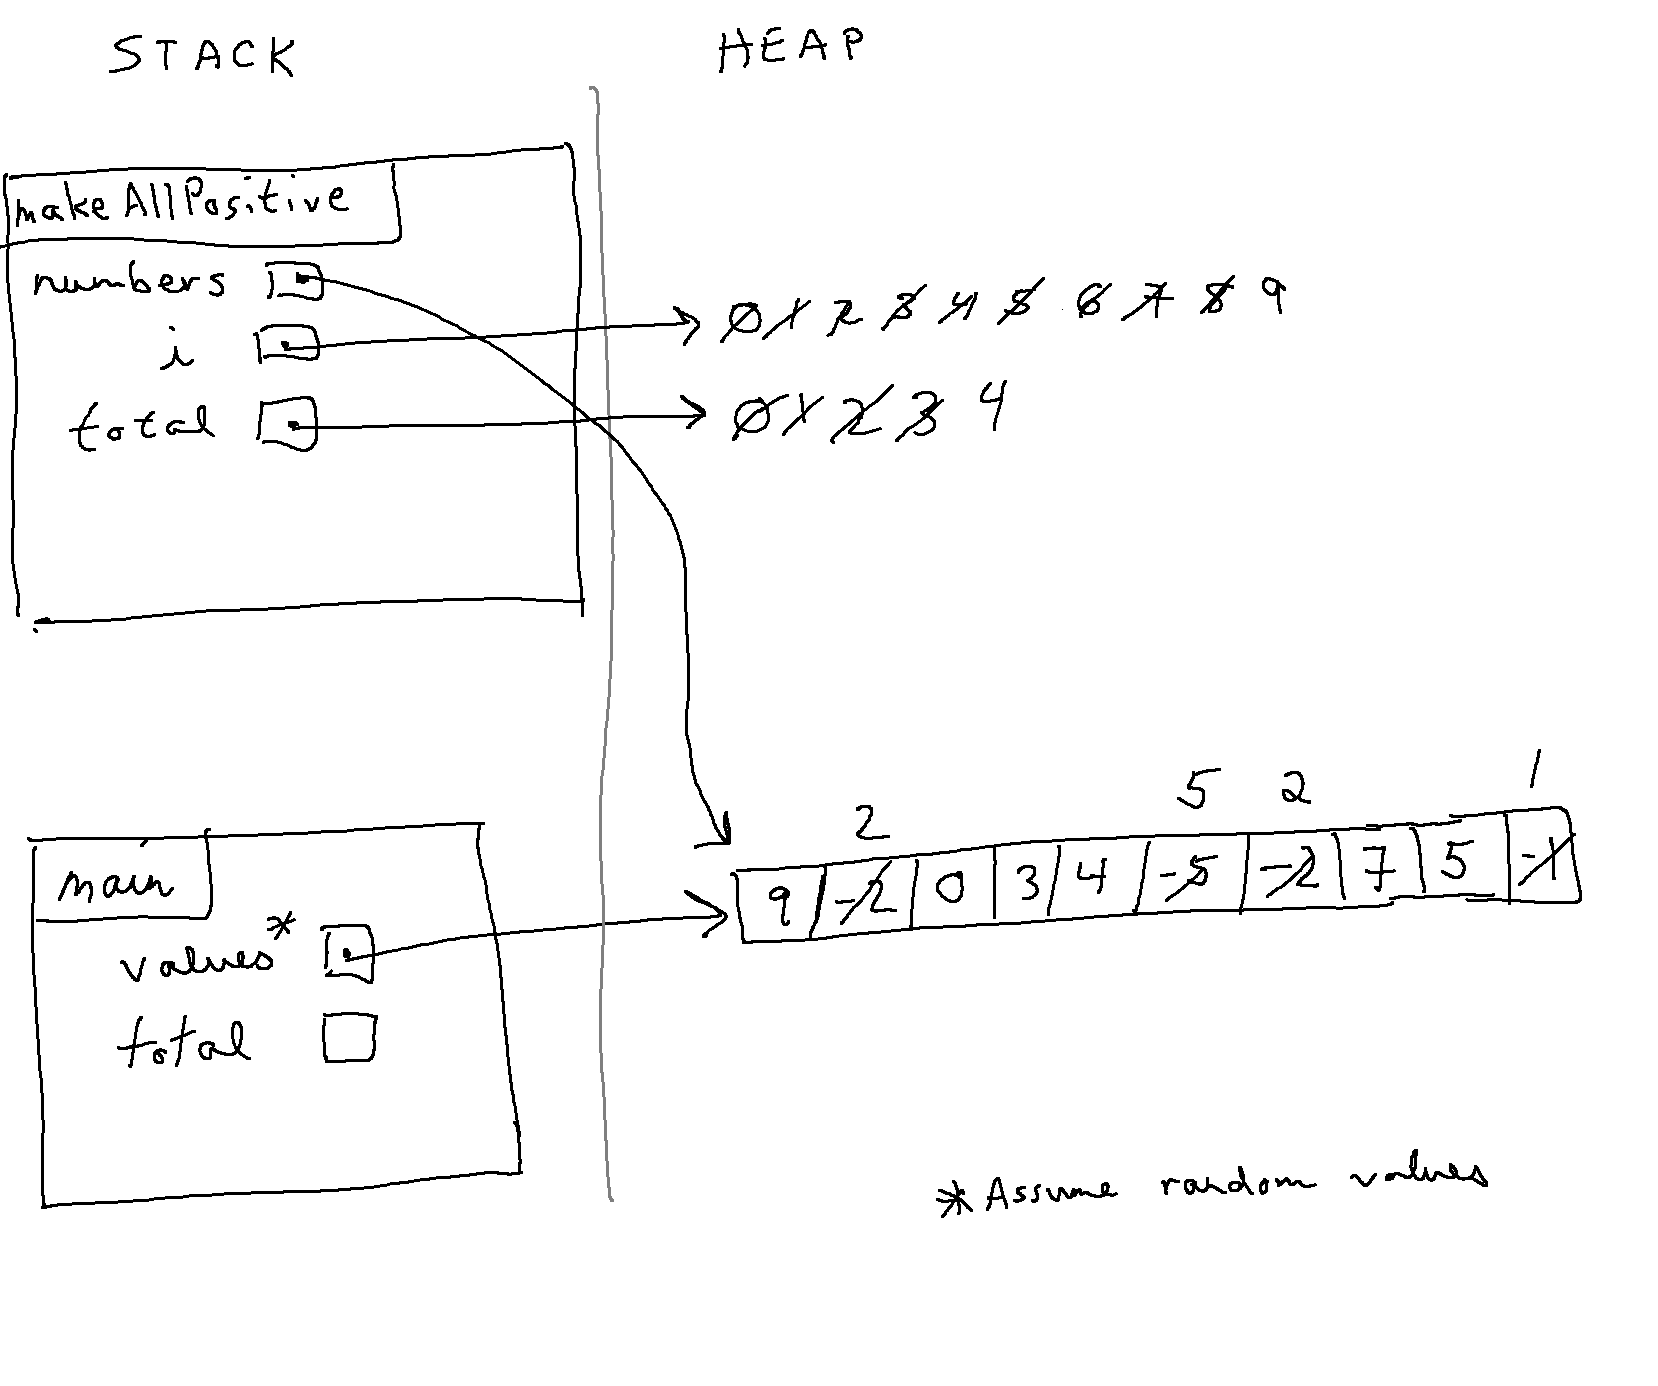 STACK
HEAP
make AllPositive
numbers
i
0 1 2 3 4 5 6 7 8 9
total
0 1 2 3 4
2 5 2 1
9 -2 0 3 4 -5 -2 7 5 -1
main
values*
total
* Assume random values